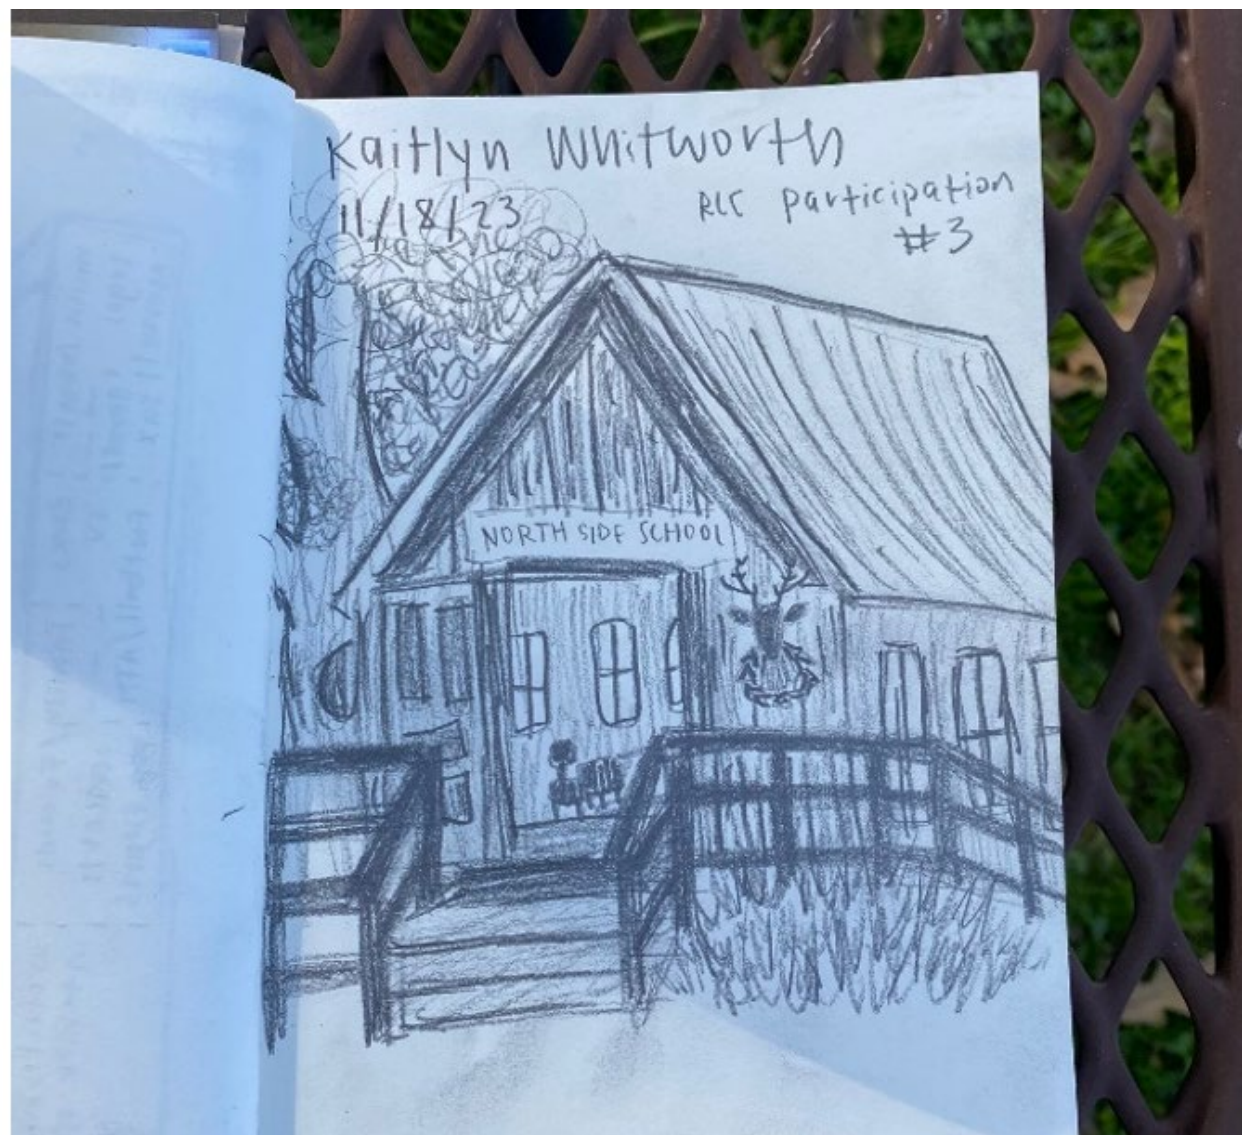 Kaitlyn Whitworth
11/18/23
RLC participation
#3
NORTH SIDE SCHOOL